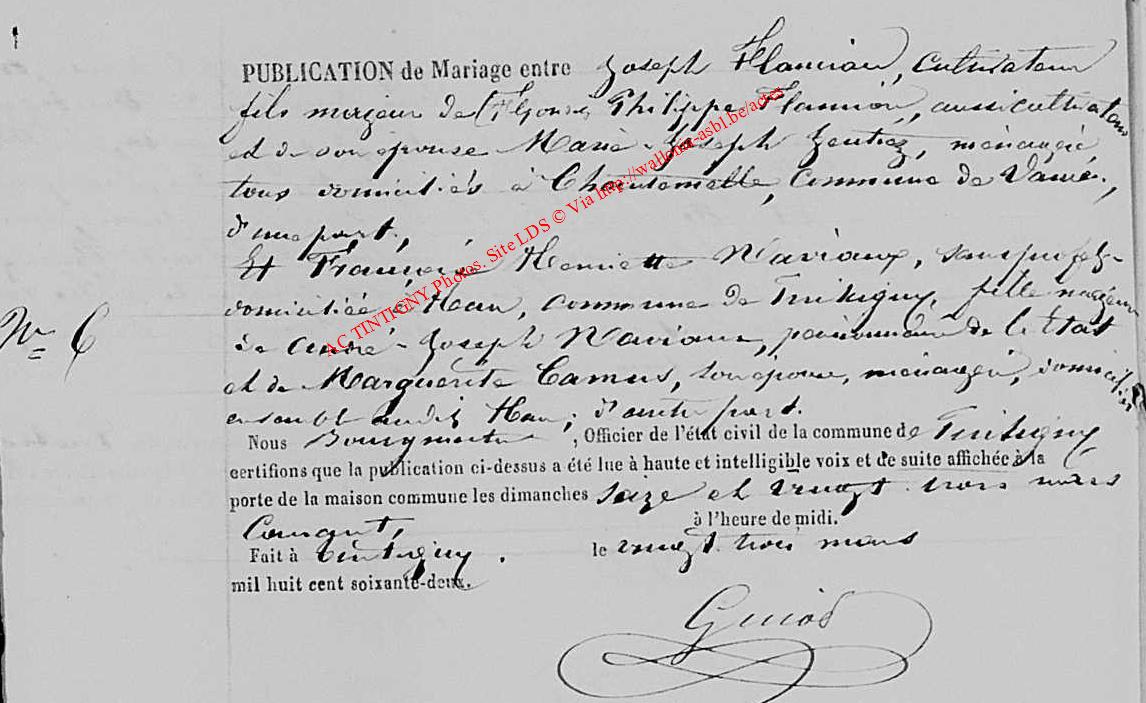 PUBLICATION de Mariage entre Joseph Flamion, Cultivateur
fils majeur de Philippe Flamion, aussi cultivateur
et de son épouse Marie-Joseph, ménagère
tous domiciliés à Chantemelle, Commune de Vance,
d'une part,
Et Françoise Henriette Naviaux, sans prof.
domiciliée à Han, commune de Tintigny, fille majeure
de André-Joseph Naviaux, pensionnaire de l'Etat
et de Marguerite Camus, son épouse, ménagère, domiciliés
ensemble audit Han, d'autre part.
N° 6
Nous Bourgmestre, Officier de l'état civil de la commune de Tintigny
certifions que la publication ci-dessus a été lue à haute et intelligible voix et de suite affichée à la
porte de la maison commune les dimanches seize et vingt trois mars
Courant, à l'heure de midi.
Fait à Tintigny. le vingt trois mars
mil huit cent soixante-deux.
Guiot
AC TINTIGNY Photos. Site LDS © Via http://wallonia-asbl.be/actes